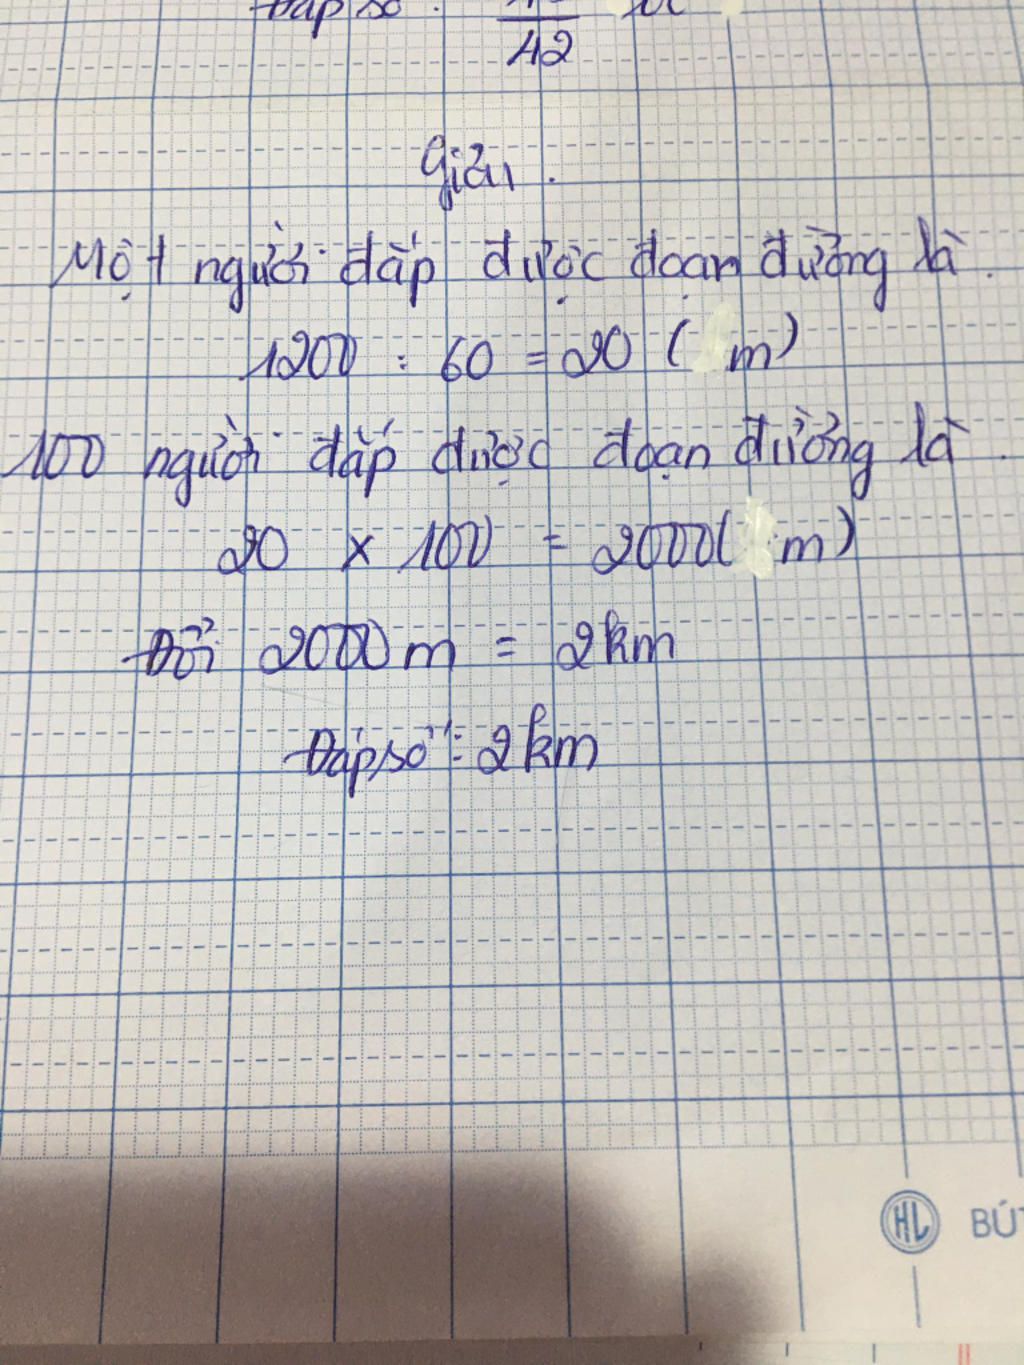 Đáp số :
42
Giải .
Một người đắp được đoạn đường là .
1200 : 60 = 20 ( m)
100 người đắp được đoạn đường là .
20 x 100 = 2000( m)
Đổi 2000 m = 2km
Đáp số : 2km
HL BÚT